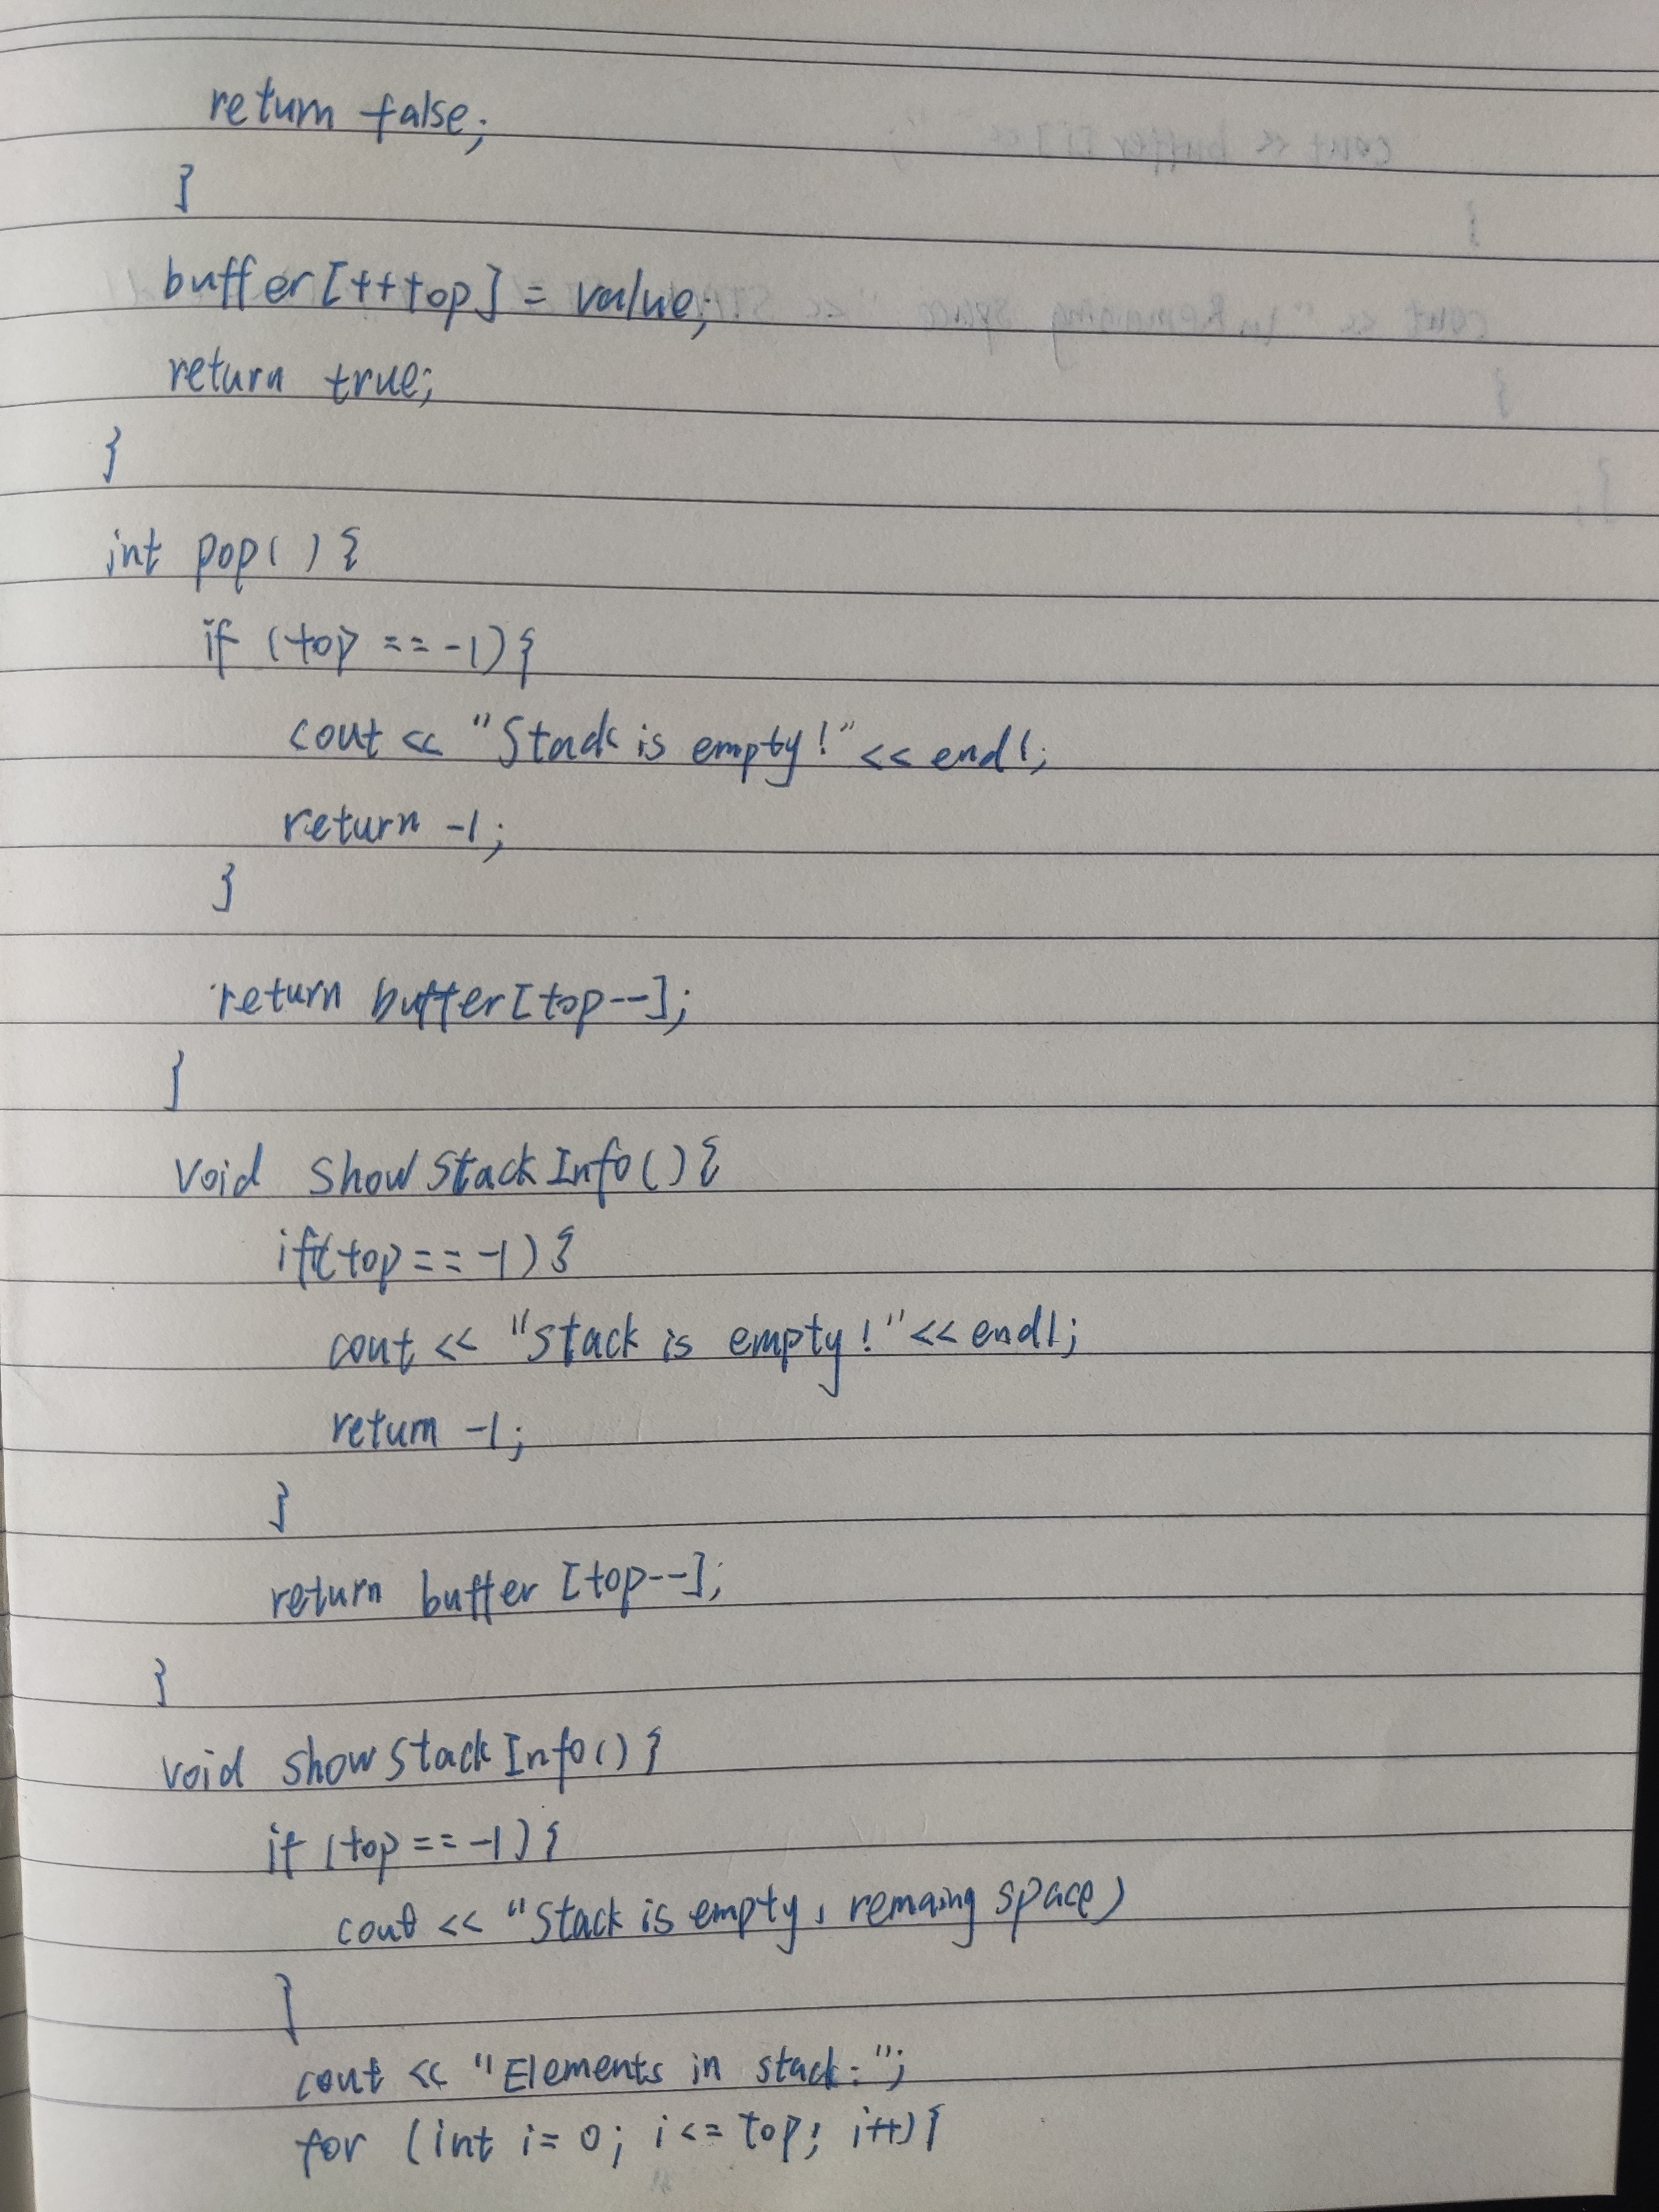 return false;
}
buffer[++top] = value;
return true;
}
int pop(){
if (top == -1){
cout << "Stack is empty!" << endl;
return -1;
}
return buffer[top--];
}
void showStackInfo(){
if(top == -1){
cout << "Stack is empty!" << endl;
return -1;
}
return buffer [top--];
}
void showStackInfo(){
if (top == -1){
cout << "Stack is empty, remaing space)
}
cout << "Elements in stack: ";
for (int i = 0; i <= top; i++){